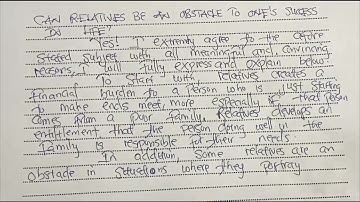 CAN RELATIVES BE AN OBSTACLE TO ONE'S SUCCESS
IN LIFE?
Yes! I extremly agree to the afore
stated subject with all meaningful and convincing
reasons, I will fully express and explain below.
To start with relatives creates a
financial burden to a person who is just starting
to make ends meet, more especially if that person
comes from a poor family. Relatives develops an
entitlement that the person doing well in the
family is responsible for their needs.
In addition, Some relatives are an
obstacle in situations where they portray